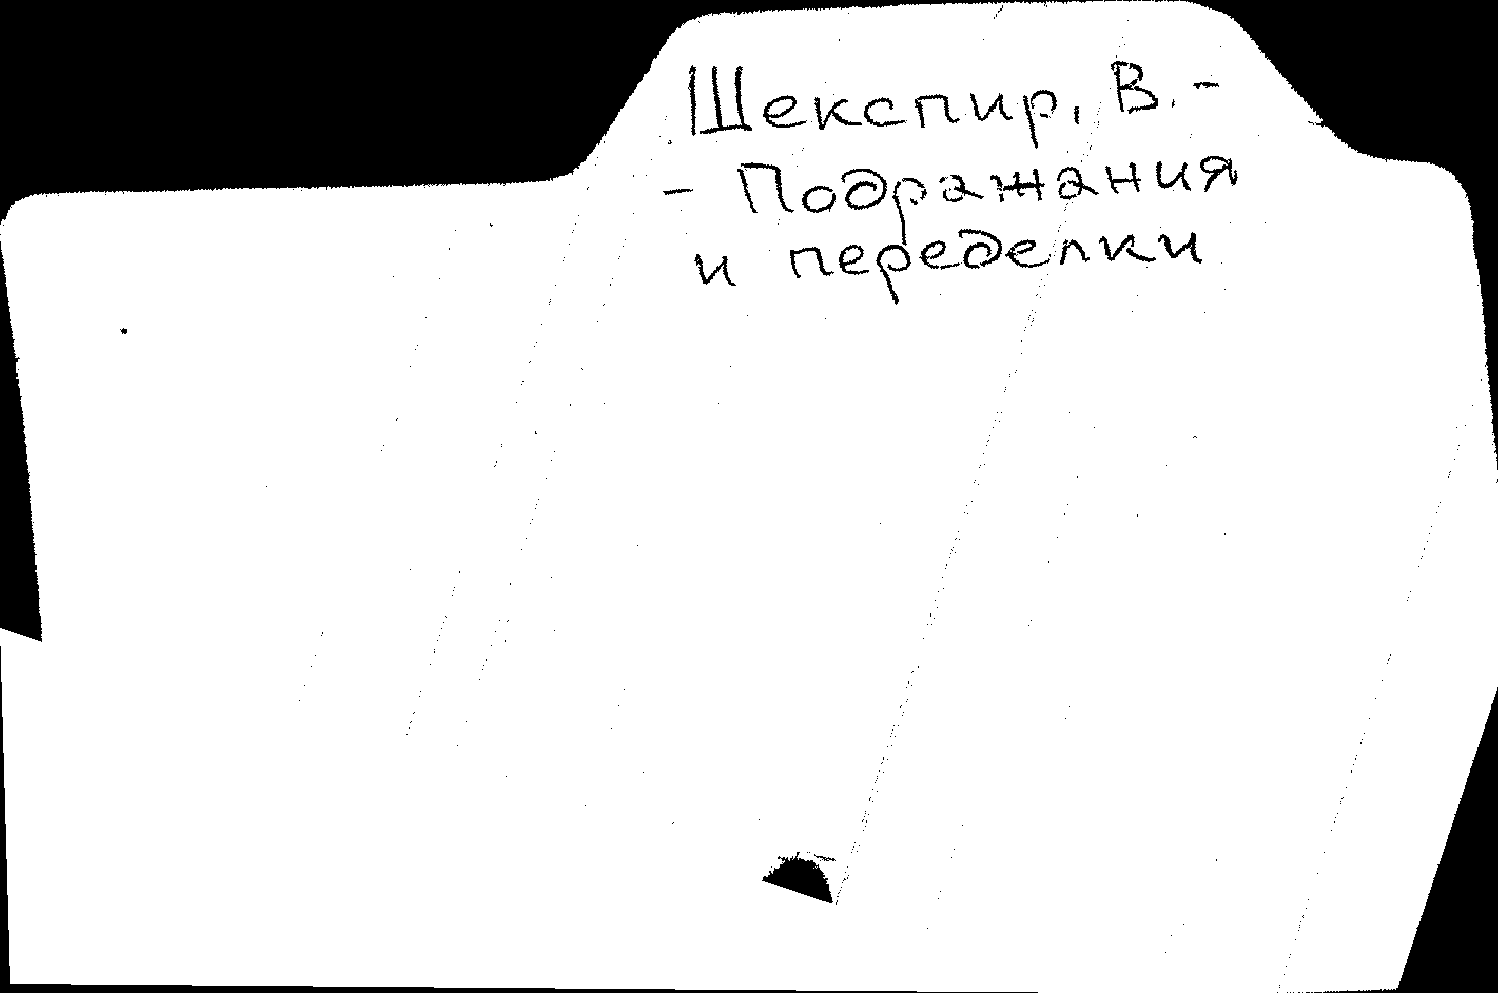 Шекспир, В. -
- Подражания
и переделки